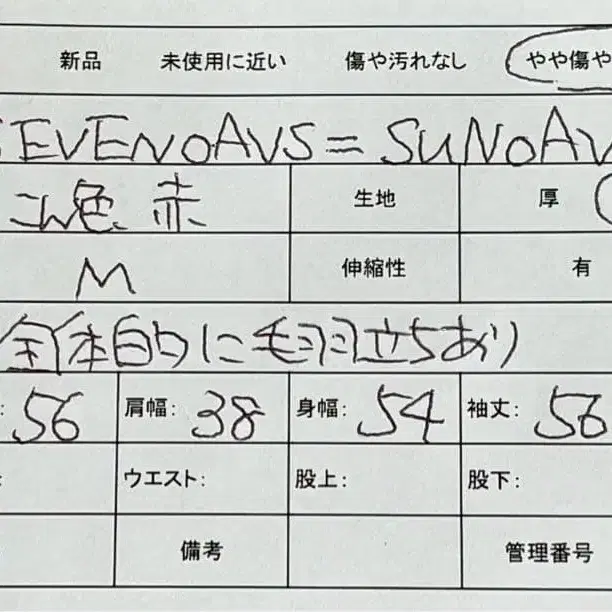 新品 未使用に近い 傷や汚れなし やや傷や
SEVENDAYS=SUNDAY
こん色、赤 生地 厚
M 伸縮性 有
全体的に毛羽立ちあり
: 56 肩幅: 38 身幅: 54 袖丈: 56
: ウエスト: 股上: 股下:
備考 管理番号